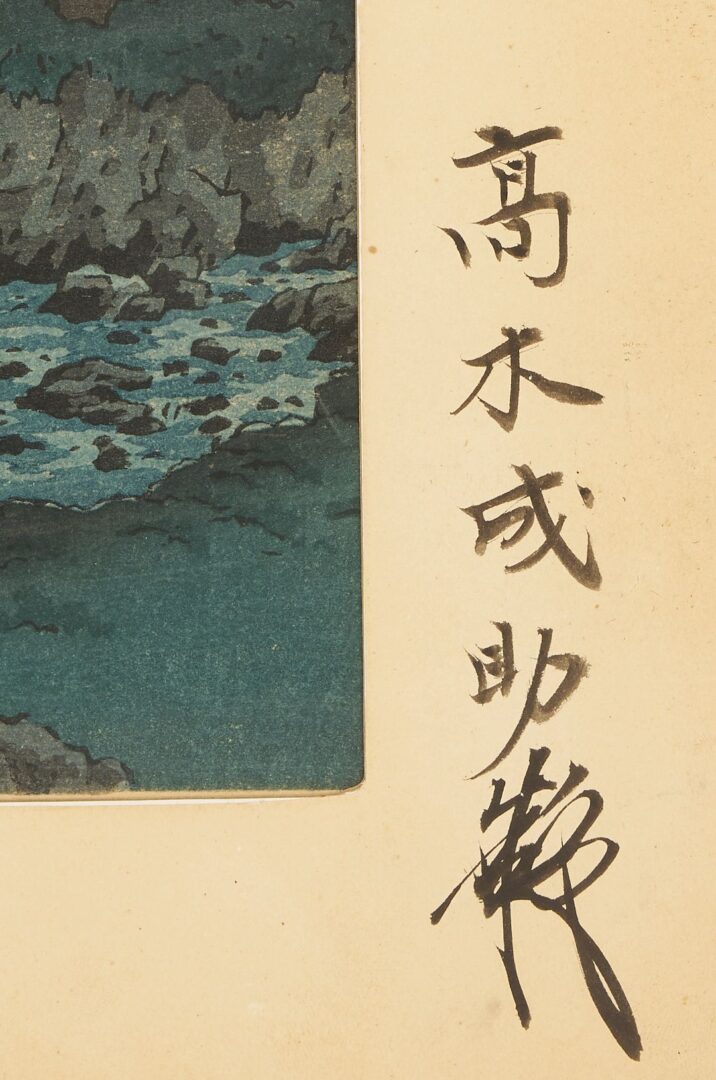 高木成助